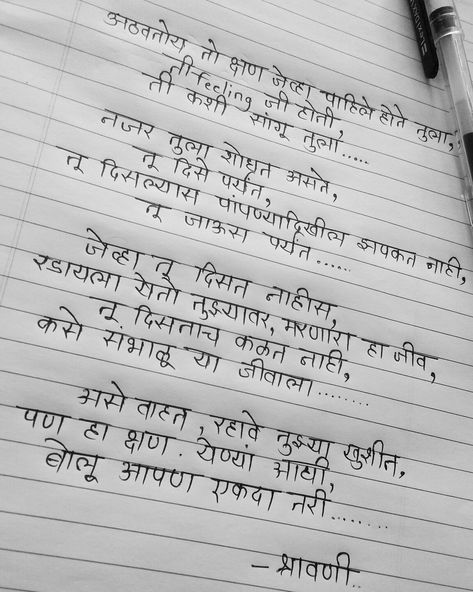 आठवतोय तो क्षण जेव्हा पाहिले होते तुला,
ती feeling जी होती,
ती कशी सांगू तुला.....
नजर तुला शोधत असते,
तू दिसे पर्यंत,
तू दिसल्यास पापण्यादिखील झपकत नाही,
तू जाऊस पर्यंत ......
जेव्हा तू दिसत नाहीस,
रडायला येतो तुझ्यावर, मरणारा हा जीव,
तू दिसताच कळत नाही,
कसे संभाळू या जीवाला........
असे वाटत, रहावे तुझ्या खुशीत,
पण हा क्षण. येण्या आधी,
बोलू आपण एकदा तरी........
- श्रावणी..